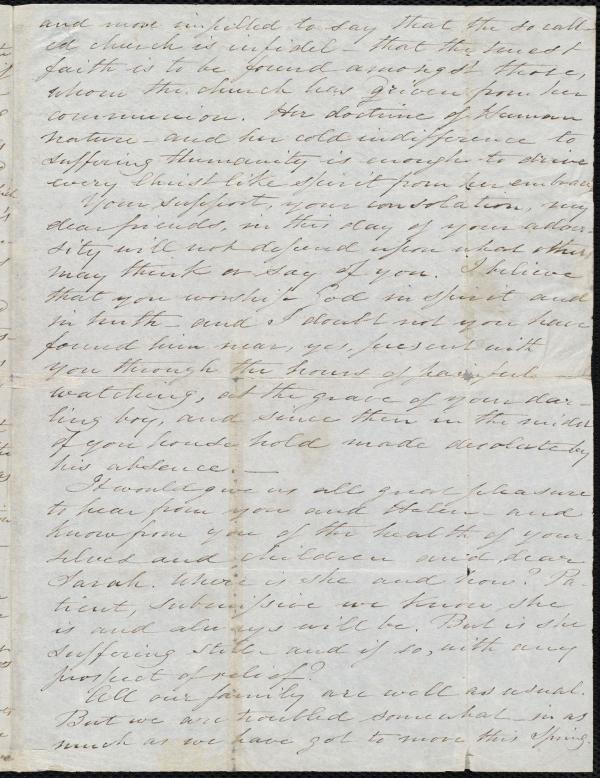 and more impelled to say that the so call-
ed church is infidel - that the truest
faith is to be found amongst those,
whom the church has driven from her
communion. Her doctrine of Human
nature - and her cold indifference to
suffering Humanity is enough to drive
every Christ like spirit from her embrace
Your support, your consolation, my
dear friends, in this day of your adver-
sity will not depend upon what others
may think or say of you. I believe
that you worship God in spirit and
in truth - and I doubt not you have
found him near, yes, present with
you through the hours of painful
watching, at the grave of your dar-
ling boy, and since then in the midst
of you house hold made desolate by
his absence. -
It would give us all great pleasure
to hear from you and Helen - and
know from you of the health of your
selves and children and dear
Sarah. Where is she and how? Pa-
tient, submissive we know she
is and always will be. But is she
suffering still - and if so, with any
prospect of relief?
All our family are well as usual.
But we are troubled somewhat in as
much as we have got to move this Spring.